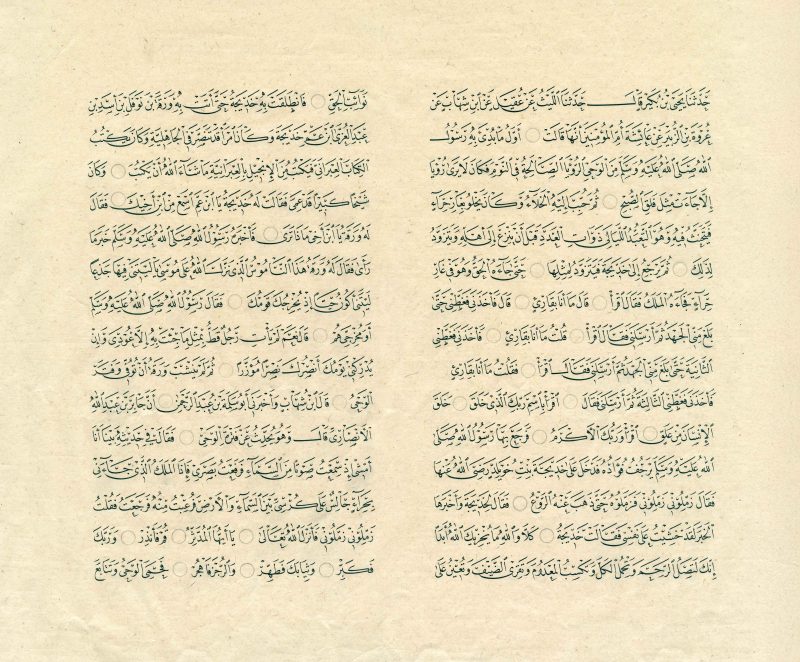 حَدَّثَنَا يَحْيَى بْنُ بُكَيْرٍ قَالَ حَدَّثَنَا اللَّيْثُ عَنْ عُقَيْلٍ عَنِ ابْنِ شِهَابٍ عَنْ
عُرْوَةَ بْنِ الزُّبَيْرِ عَنْ عَائِشَةَ أُمِّ الْمُؤْمِنِينَ أَنَّهَا قَالَتْ ○ أَوَّلُ مَا بُدِئَ بِهِ رَسُولُ
اللهِ صَلَّى اللهُ عَلَيْهِ وَسَلَّمَ مِنَ الْوَحْيِ الرُّؤْيَا الصَّالِحَةُ فِي النَّوْمِ فَكَانَ لَا يَرَى رُؤْيَا
إِلَّا جَاءَتْ مِثْلَ فَلَقِ الصُّبْحِ ○ ثُمَّ حُبِّبَ إِلَيْهِ الْخَلَاءُ وَكَانَ يَخْلُو بِغَارِ حِرَاءٍ
فَيَتَحَنَّثُ فِيهِ وَهُوَ التَّعَبُّدُ اللَّيَالِيَ ذَوَاتِ الْعَدَدِ قَبْلَ أَنْ يَنْزِعَ إِلَى أَهْلِهِ وَيَتَزَوَّدُ
لِذَلِكَ ○ ثُمَّ يَرْجِعُ إِلَى خَدِيجَةَ فَيَتَزَوَّدُ لِمِثْلِهَا ○ حَتَّى جَاءَهُ الْحَقُّ وَهُوَ فِي غَارِ
حِرَاءٍ فَجَاءَهُ الْمَلَكُ فَقَالَ اقْرَأْ ○ قَالَ مَا أَنَا بِقَارِئٍ ○ قَالَ فَأَخَذَنِي فَغَطَّنِي حَتَّى
بَلَغَ مِنِّي الْجَهْدَ ثُمَّ أَرْسَلَنِي فَقَالَ اقْرَأْ ○ قُلْتُ مَا أَنَا بِقَارِئٍ ○ فَأَخَذَنِي فَغَطَّنِي
الثَّانِيَةَ حَتَّى بَلَغَ مِنِّي الْجَهْدَ ثُمَّ أَرْسَلَنِي فَقَالَ اقْرَأْ ○ فَقُلْتُ مَا أَنَا بِقَارِئٍ
فَأَخَذَنِي فَغَطَّنِي الثَّالِثَةَ ثُمَّ أَرْسَلَنِي فَقَالَ ○ اقْرَأْ بِاسْمِ رَبِّكَ الَّذِي خَلَقَ ○ خَلَقَ
الْإِنْسَانَ مِنْ عَلَقٍ ○ اقْرَأْ وَرَبُّكَ الْأَكْرَمُ ○ فَرَجَعَ بِهَا رَسُولُ اللهِ صَلَّى
اللهُ عَلَيْهِ وَسَلَّمَ يَرْجُفُ فُؤَادُهُ فَدَخَلَ عَلَى خَدِيجَةَ بِنْتِ خُوَيْلِدٍ رَضِيَ اللهُ عَنْهَا
فَقَالَ زَمِّلُونِي زَمِّلُونِي فَزَمَّلُوهُ حَتَّى ذَهَبَ عَنْهُ الرَّوْعُ ○ فَقَالَ لِخَدِيجَةَ وَأَخْبَرَهَا
الْخَبَرَ لَقَدْ خَشِيتُ عَلَى نَفْسِي فَقَالَتْ خَدِيجَةُ ○ كَلَّا وَاللهِ مَا يُخْزِيكَ اللهُ أَبَدًا
إِنَّكَ لَتَصِلُ الرَّحِمَ وَتَحْمِلُ الْكَلَّ وَتَكْسِبُ الْمَعْدُومَ وَتَقْرِي الضَّيْفَ وَتُعِينُ عَلَى
نَوَائِبِ الْحَقِّ ○ فَانْطَلَقَتْ بِهِ خَدِيجَةُ حَتَّى أَتَتْ بِهِ وَرَقَةَ بْنَ نَوْفَلِ بْنِ أَسَدِ بْنِ
عَبْدِ الْعُزَّى ابْنَ عَمِّ خَدِيجَةَ وَكَانَ امْرَأً قَدْ تَنَصَّرَ فِي الْجَاهِلِيَّةِ وَكَانَ يَكْتُبُ
الْكِتَابَ الْعِبْرَانِيَّ فَيَكْتُبُ مِنَ الْإِنْجِيلِ بِالْعِبْرَانِيَّةِ مَا شَاءَ اللهُ أَنْ يَكْتُبَ ○ وَكَانَ
شَيْخًا كَبِيرًا قَدْ عَمِيَ فَقَالَتْ لَهُ خَدِيجَةُ يَا ابْنَ عَمِّ اسْمَعْ مِنِ ابْنِ أَخِيكَ ○ فَقَالَ
لَهُ وَرَقَةُ يَا ابْنَ أَخِي مَاذَا تَرَى ○ فَأَخْبَرَهُ رَسُولُ اللهِ صَلَّى اللهُ عَلَيْهِ وَسَلَّمَ خَبَرَ مَا
رَأَى فَقَالَ لَهُ وَرَقَةُ هَذَا النَّامُوسُ الَّذِي نَزَّلَ اللهُ عَلَى مُوسَى يَا لَيْتَنِي فِيهَا جَذَعًا
لَيْتَنِي أَكُونُ حَيًّا إِذْ يُخْرِجُكَ قَوْمُكَ ○ فَقَالَ رَسُولُ اللهِ صَلَّى اللهُ عَلَيْهِ وَسَلَّمَ
أَوَمُخْرِجِيَّ هُمْ ○ قَالَ نَعَمْ لَمْ يَأْتِ رَجُلٌ قَطُّ بِمِثْلِ مَا جِئْتَ بِهِ إِلَّا عُودِيَ وَإِنْ
يُدْرِكْنِي يَوْمُكَ أَنْصُرْكَ نَصْرًا مُؤَزَّرًا ○ ثُمَّ لَمْ يَنْشَبْ وَرَقَةُ أَنْ تُوُفِّيَ وَفَتَرَ
الْوَحْيُ ○ قَالَ ابْنُ شِهَابٍ وَأَخْبَرَنِي أَبُو سَلَمَةَ بْنُ عَبْدِ الرَّحْمَنِ ○ أَنَّ جَابِرَ بْنَ عَبْدِ اللهِ
الْأَنْصَارِيَّ قَالَ وَهُوَ يُحَدِّثُ عَنْ فَتْرَةِ الْوَحْيِ ○ فَقَالَ فِي حَدِيثِهِ بَيْنَا أَنَا
أَمْشِي إِذْ سَمِعْتُ صَوْتًا مِنَ السَّمَاءِ فَرَفَعْتُ بَصَرِي فَإِذَا الْمَلَكُ الَّذِي جَاءَنِي
بِحِرَاءٍ جَالِسٌ عَلَى كُرْسِيٍّ بَيْنَ السَّمَاءِ وَالْأَرْضِ فَرُعِبْتُ مِنْهُ فَرَجَعْتُ فَقُلْتُ
زَمِّلُونِي زَمِّلُونِي فَأَنْزَلَ اللهُ تَعَالَى ○ يَا أَيُّهَا الْمُدَّثِّرُ ○ قُمْ فَأَنْذِرْ ○ وَرَبَّكَ
فَكَبِّرْ ○ وَثِيَابَكَ فَطَهِّرْ ○ وَالرُّجْزَ فَاهْجُرْ ○ فَحَمِيَ الْوَحْيُ وَتَتَابَعَ